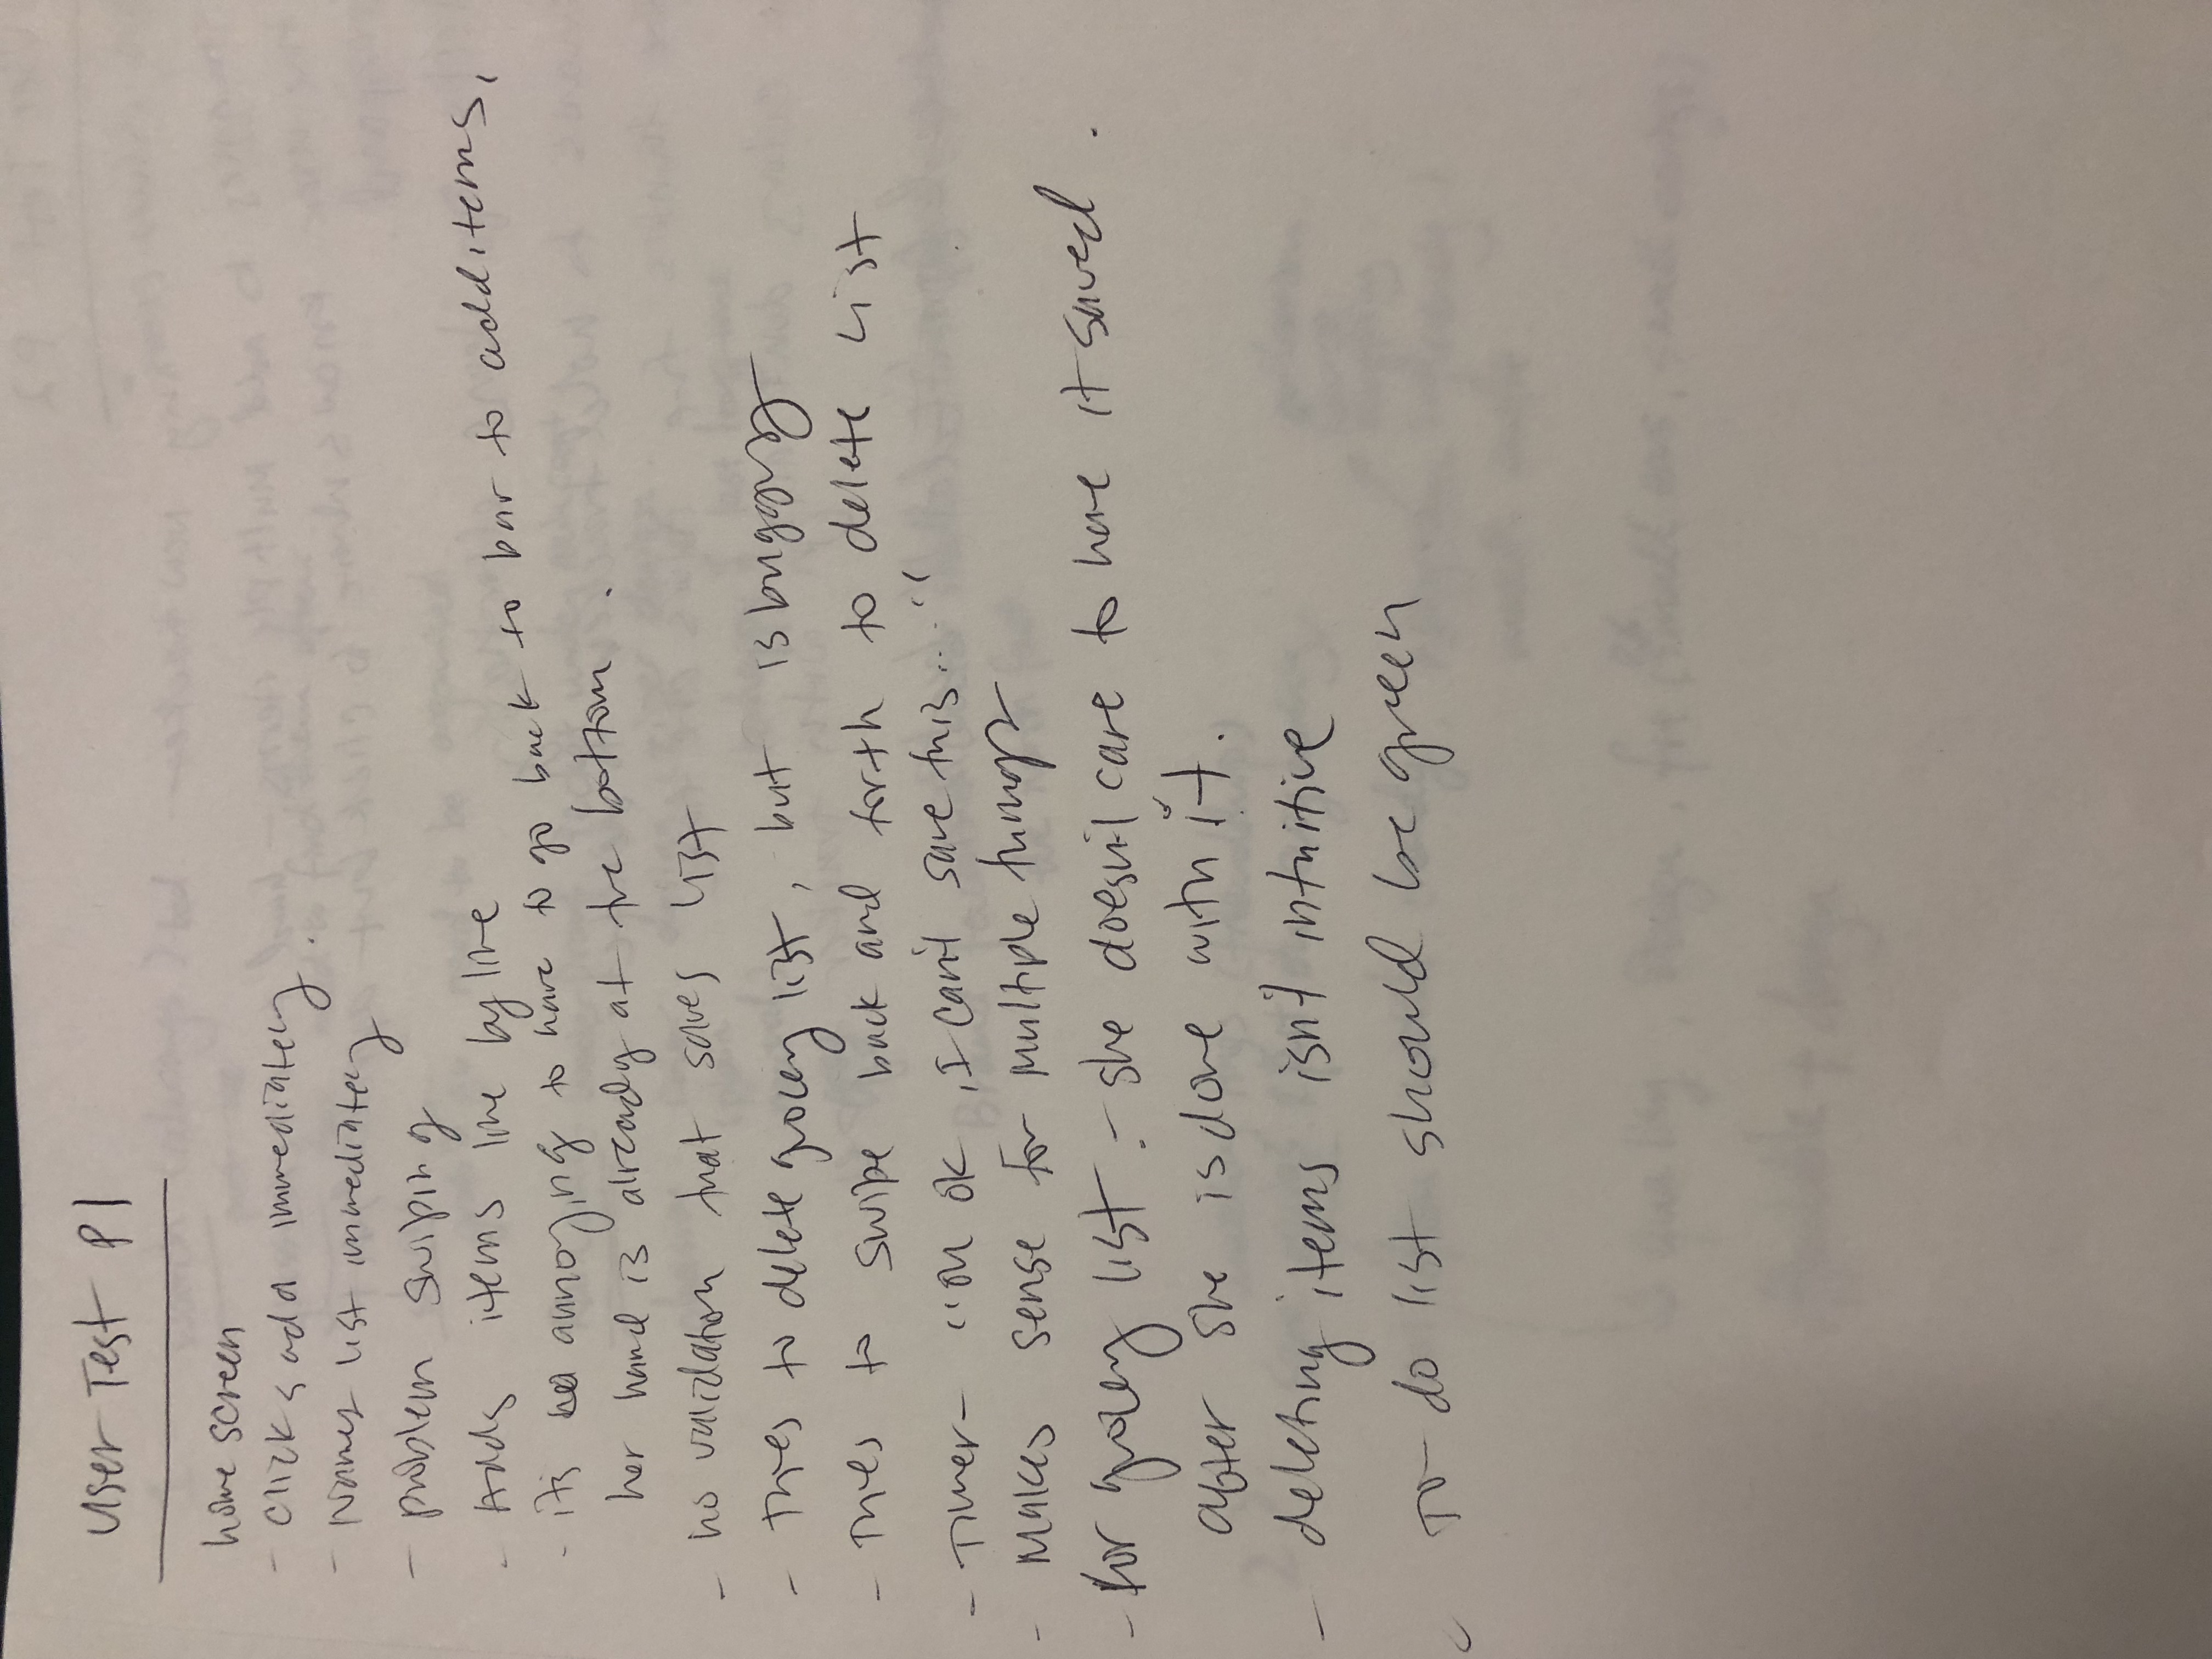 User Test P1
home screen
- clicks add immediately.
- Names list immediately
- problem swiping
- Adds items line by line
- its annoying to have to go back to bar to add items,
her hand is already at the bottom.
- no validation that saves list
- tries to delete grocery list, but is buggy
- Tries to swipe back and forth to delete list
- Timer - "oh ok, I can't save this..."
- Makes sense for multiple things
- for grocery list - she doesn't care to have it saved.
after she is done with it.
- deleting items isn't intuitive
- To do list should be green